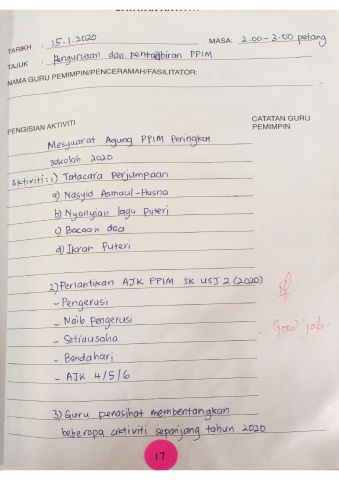 CATATAN AKTIVITI
TARIKH : 15.1.2020 MASA: 2.00-3.00 petang
TAJUK : Pengurusan dan pentadbiran PPIM
NAMA GURU PEMIMPIN/PENCERAMAH/FASILITATOR:
PENGISIAN AKTIVITI
CATATAN GURU
PEMIMPIN
Mesyuarat Agung PPIM Peringkat
sekolah 2020
Aktiviti: 1) Tatacara Perjumpaan
a) Nasyid Asmaul-Husna
b) Nyanyian lagu Puteri
c) Bacaan doa
d) Ikrar Puteri
2) Perlantikan AJK PPIM SK USJ 2 (2020)
- Pengerusi
- Naib Pengerusi
Good job.
- Setiausaha
- Bendahari
- AJK 4/5/6
3) Guru penasihat membentangkan
beberapa aktiviti sepanjang tahun 2020
17